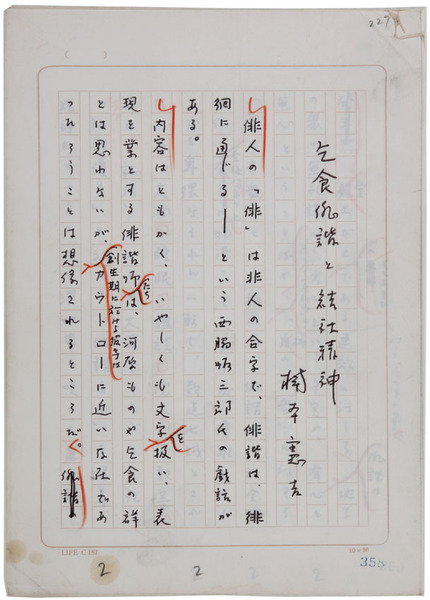 227
乞食俳諧と結社精神
楠本憲吉
俳人の「俳」は非人の合字で、俳諧は、俳
網に通じる――という西脇順三郎氏の戯話が
ある。
内容はともかく、いやしくも文字を扱い、表
現を業とする俳諧師たちは、河原ものや乞食の群
とは思わないが、創生期における彼等は
アウトローに近い存在であ
ったろうことは想像されるところだ。俳諧
LIFE C 157
358
2
2
2